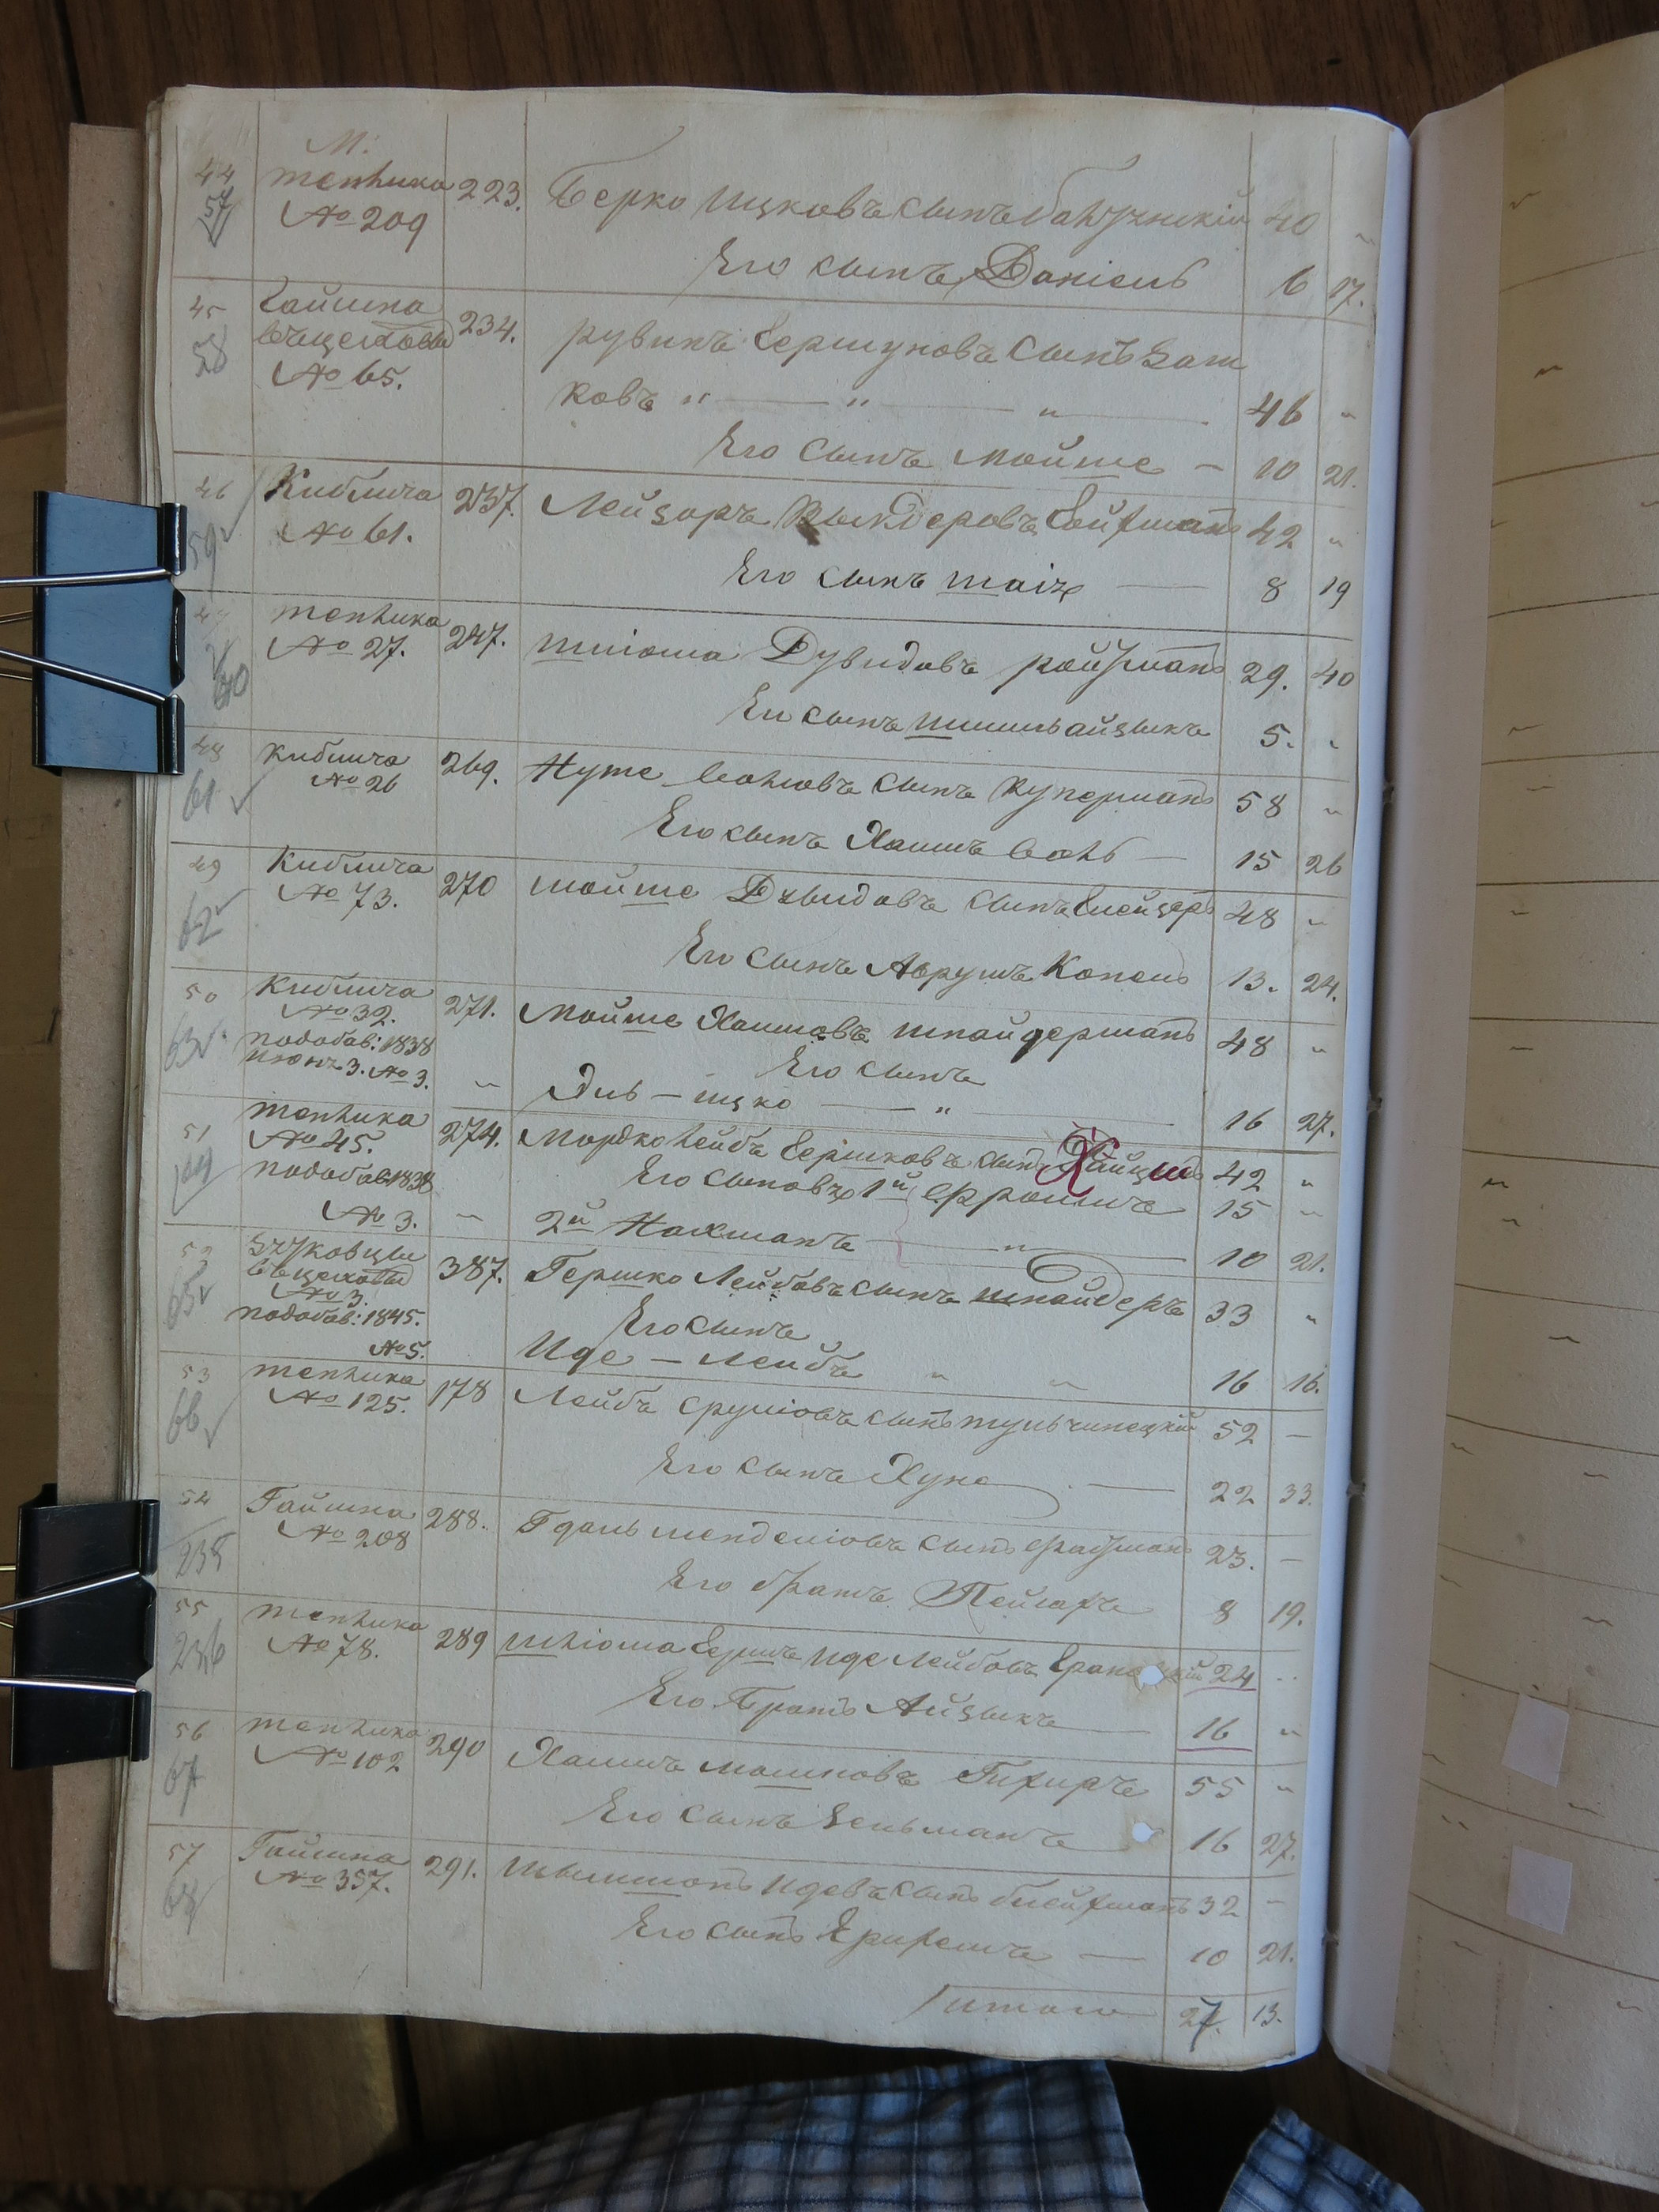 М:
44 тепЛика 223. Берко Ицковъ сынъ 40 "
57 № 209
Его сынъ Даніель 6 17.
45 Гайсина 234. рувинъ Гершуновъ сынъ Заш
58 № 65. ковъ " — " — " 46 "
Его сынъ Мойше — 10 21.
46 Кублича 237. Лейзоръ Гойфманъ 42 "
59 № 61.
Его сынъ 8 19
тепЛика 247. шлiома Дувидовъ ройфманъ 29. 40
60 № 27.
Его сынъ айзыкъ 5. "
48 Кублича 269. Нуте сынъ Куперманъ 58 "
61 № 26
Его сынъ Хаимъ Волъ — 15 26
49 Кублича 270 мойше Дувидовъ сынъ 48 "
62 № 73.
Его сынъ Аврумъ Копель 13. 24.
50 Кублича 271. Мойше Хаимовъ шнайдерманъ 48 "
63 № 32.
подобав: 1838 Его сынъ
Июнъ 3. № 3. " Эль – ицко — " 16 27.
51 тепЛика 274. Мордко Лейбъ Гершковъ сынъ 42 "
64 № 45.
подобав 1838 Его сыновъя 1й Ефроимъ 15 "
№ 3. – 2й Нахманъ — " 10 21.
52 387. Гершко Лейбовъ сынъ шнайдеръ 33 "
65 № 3.
подобав: 1845. Его сынъ
№ 5. Иде – Лейбъ " " 16 16.
53 тепЛика 178 Лейбъ Срулiовъ сынъ тульчинецкiй 52 –
66 № 125.
Его сынъ Хуна — 22 33.
54 Гайсина 288. Гдаль менделiовъ сынъ 23. –
235 № 208
Его братъ Пейсахъ 8 19.
55 тепЛика 289 шлiома Гершъ иде Лейбовъ 24 "
236 № 78.
Его Братъ Айзыкъ — 16 "
56 тепЛика 290 Хаимъ мошковъ 55 "
67 № 102
Его сынъ Зельманъ 16 27.
57 Гайсина 291. Идевъ сынъ 32 –
68 № 357.
Его сынъ Ефроимъ — 10 21.
Итого 27. 13.